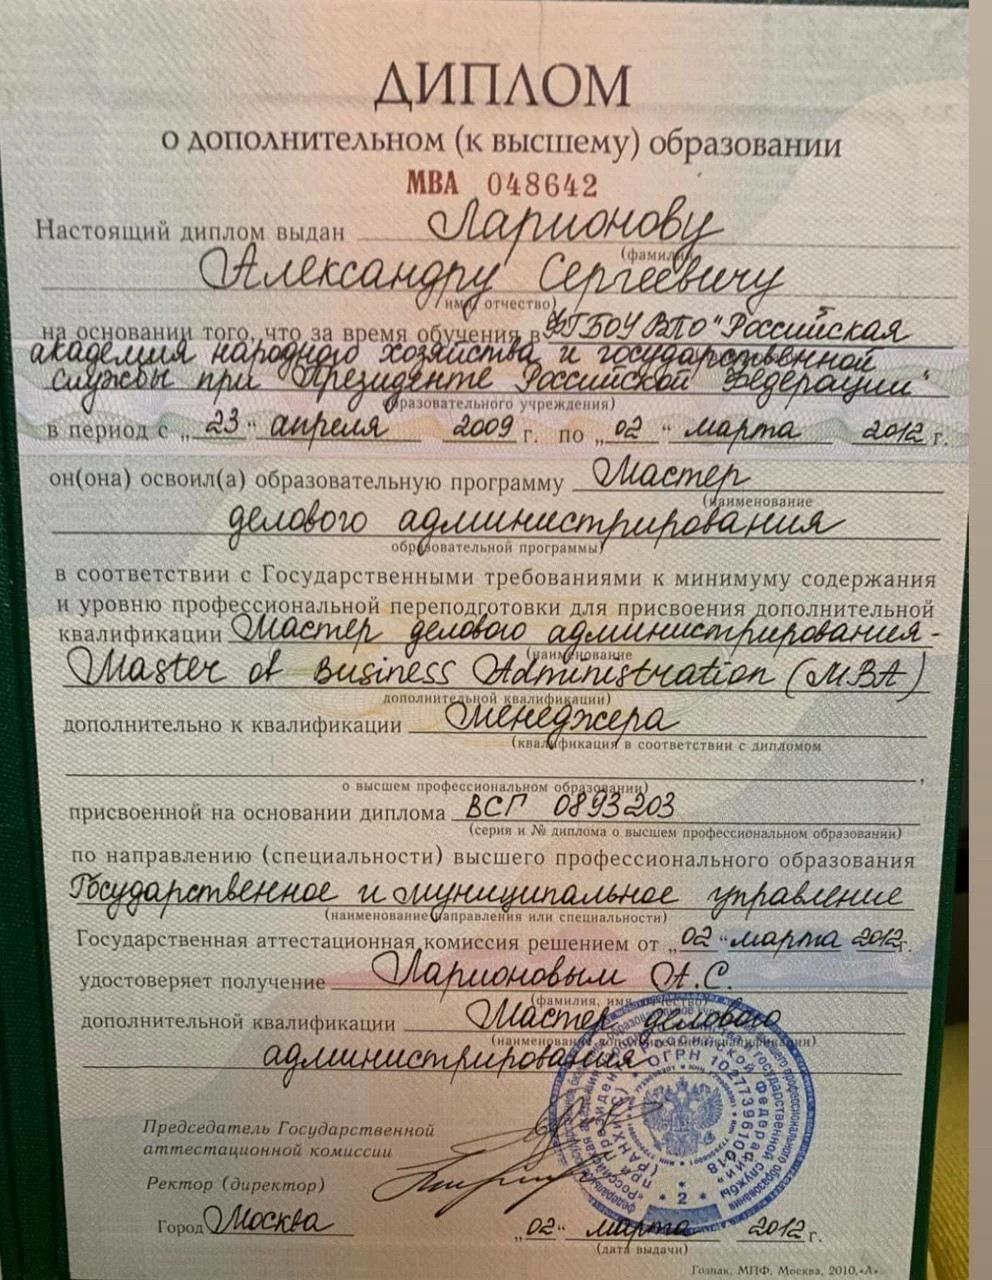 ДИПЛОМ
о дополнительном (к высшему) образовании
МВА 048642
Настоящий диплом выдан Ларионову
(фамилия)
Александру Сергеевичу
имя, отчество)
на основании того, что за время обучения в ФГБОУ ВПО "Российская
академия народного хозяйства и государственной
службы при Президенте Российской Федерации"
образовательного учреждения)
в период с „ 23 “ апреля 2009 г. по „ 02 “ марта 2012 г.
он(она) освоил(а) образовательную программу Мастер
(наименование
делового администрирования
образовательной программы)
в соответствии с Государственными требованиями к минимуму содержания
и уровню профессиональной переподготовки для присвоения дополнительной
квалификации Мастер делового администрирования -
(наименование
Master of Business Administration (MBA)
дополнительной квалификации)
дополнительно к квалификации менеджера
(квалификация в соответствии с дипломом
,
о высшем профессиональном образовании)
присвоенной на основании диплома ВСГ 0893203
(серия и № диплома о высшем профессиональном образовании)
по направлению (специальности) высшего профессионального образования
Государственное и муниципальное управление
(наименование направления или специальности)
Государственная аттестационная комиссия решением от „ 02 “ марта 2012 г.
удостоверяет получение Ларионовым А.С.
(фамилия, имя, отчество)
дополнительной квалификации Мастер делового
(наименование дополнительной квалификации)
администрирования
Председатель Государственной
аттестационной комиссии
Ректор (директор)
ОГРН 1027739610018
Российской Федерации
(РАНХиГС)
* 2 *
Город Москва „ 02 “ марта 2012 г.
(дата выдачи)
Гознак, МПФ, Москва, 2010, «А».